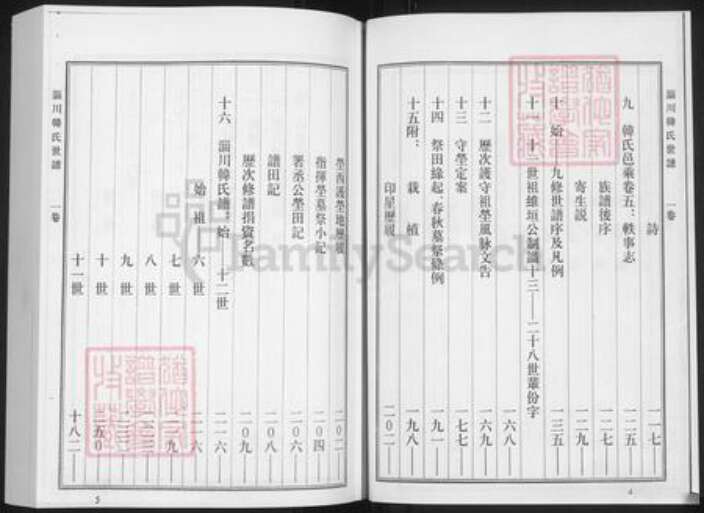 淄川韓氏世譜 一卷
詩 一一七
九 韓氏邑乘卷五：軼事志 一二五
族譜後序 一二七
寄生説 一二九
十 始——九修世譜序及凡例 一三五
十一 十二世祖維垣公制議十三——二十八世輩份字 一六八
十二 歷次護守祖塋風脉文告 一六九
十三 守塋定案 一七七
十四 祭田緣起、春秋墓祭條例 一九一
十五附： 栽植 一九八
印星歷履 二〇二
4
塋西護塋地歷履 二〇二
指揮塋墓祭小記 二〇四
署丞公塋田記 二〇六
譜田記 二〇八
歷次修譜捐資名數 二〇九
十六 淄川韓氏譜：始——十二世 二一六
始祖——六世 二一六
七世
八世
九世
十世 二五〇
十一世 十八二
淄川韓氏世譜 一卷
5
FamilySearch